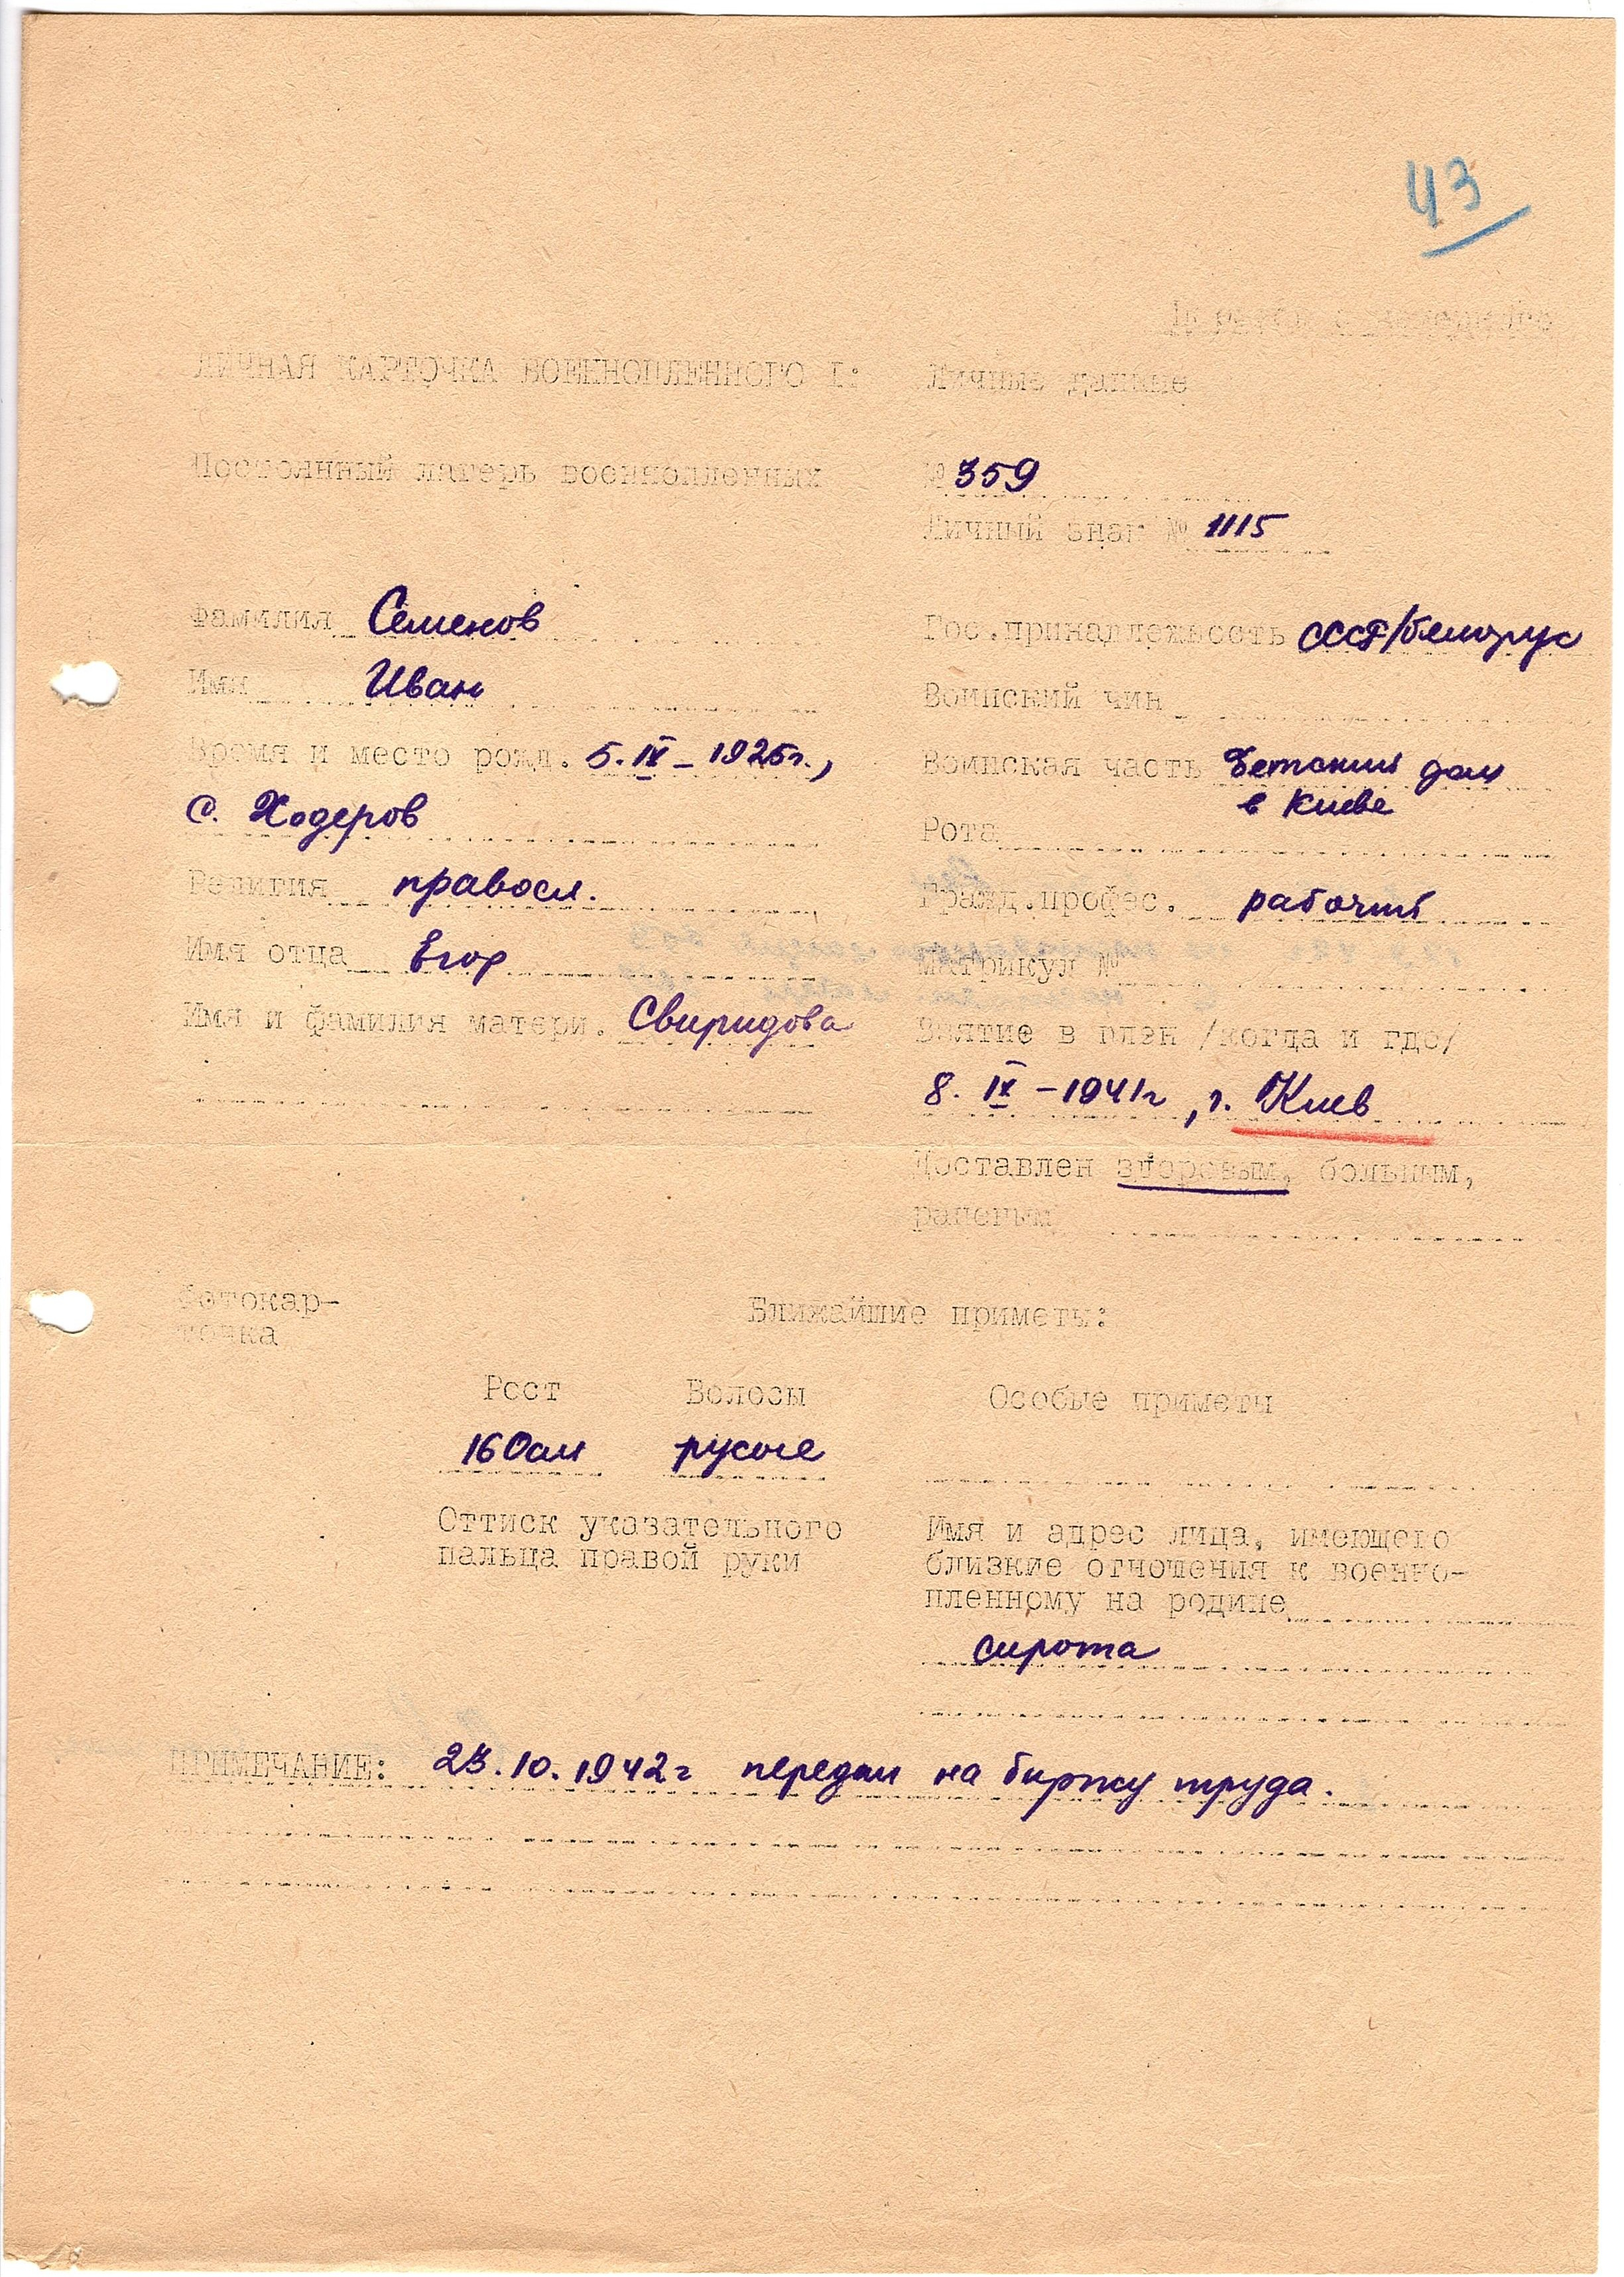 43
Перевод с немецкого
ЛИЧНАЯ КАРТОЧКА ВОЕННОПЛЕННОГО I: Личные данные
Постоянный лагерь военнопленных № 359
Личный знак № 1115
Фамилия Семенов
Имя Иван
Время и место рожд. 5.IX-1925г.,
с. Ходеров
Религия правосл.
Имя отца Егор
Имя и фамилия матери. Свиридова
Гос.принадлежность СССР/белорус
Воинский чин
Воинская часть Детский дом
в Киеве
Рота
Гражд.профес. рабочий
Матрикул №
Взятие в плен /когда и где/
8. IX-1941г, г. Киев
Доставлен здоровым, больным,
раненым
Фотокар-
точка
Ближайшие приметы:
Рост Волосы Особые приметы
160см русые
Оттиск указательного
пальца правой руки
Имя и адрес лица, имеющего
близкие отношения к военно-
пленному на родине
сирота
ПРИМЕЧАНИЕ: 23.10.1942г передан на биржу труда.